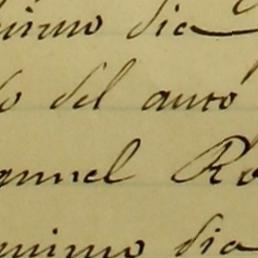 imo dia
o del auto
anuel Ro
imo dia